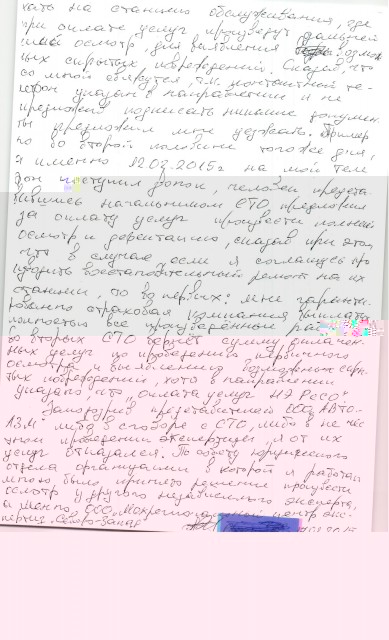 хать на станцию обслуживания, где
при оплате услуг произведут дальней
ший осмотр для выявления возмож
ных скрытых повреждений. Сказав, что
со мной свяжутся т.к. контактный те-
лефон указан в направлении и не
предложив подписать никакие докумен-
ты предложил мне уезжать. Пример
но во второй половине того же дня,
а именно 12.03.2015г. на мой теле
фон поступил звонок, человек предста-
вившись начальником СТО предложил
за оплату услуг произвести полный
осмотр и дефектацию, сказав при этом,
что в случае если я соглашусь про
изводить восстановительный ремонт на их
станции, то во первых: мне гаранти-
рованно страховая компания выплатит
полностью все
во вторых СТО вернёт сумму оплачен-
ных услуг по проведению первичного
осмотра и выявлению возможных скры
тых повреждений, хотя в направлении
указано, что "оплата услуг НЭ РЕСО".
Заподозрив представителей ООО "АВТО-
АЗМ" либо в сговоре с СТО, либо в не чес
тном проведении экспертизы, я от их
услуг отказался. По совету юридического
отдела организации в которой я работаю
мною было принято решение произвести
осмотр у другого независимого эксперта,
а именно ООО "Межрегиональный центр экс-
пертиз Северо-Запад